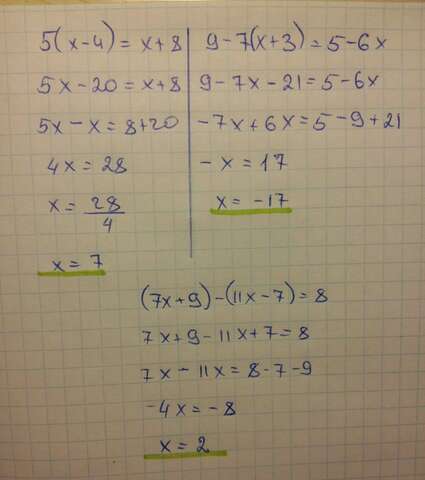 5(x-4)=x+8
5x-20=x+8
5x-x=8+20
4x=28
x=28/4
x=7
9-7(x+3)=5-6x
9-7x-21=5-6x
-7x+6x=5-9+21
-x=17
x=-17
(7x+9)-(11x-7)=8
7x+9-11x+7=8
7x-11x=8-7-9
-4x=-8
x=2